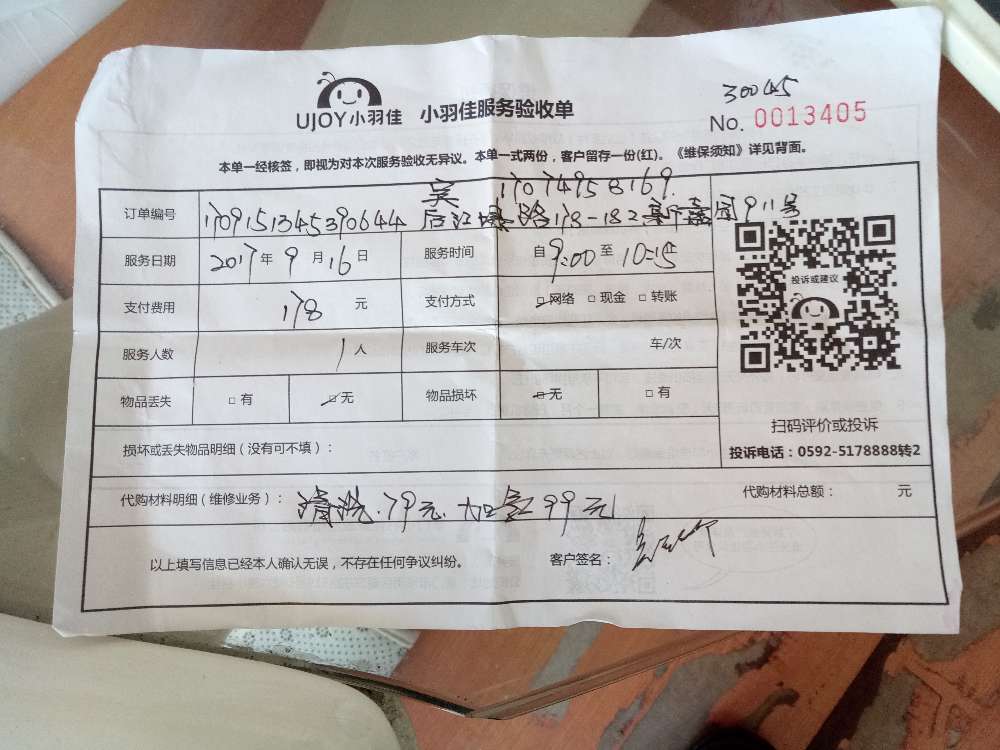 UJOY小羽佳 小羽佳服务验收单
30045
No. 0013405
本单一经核签，即视为对本次服务验收无异议。本单一式两份，客户留存一份(红)。《维保须知》详见背面。
吴 17074958169.
订单编号 1709151345390644 后江埭路178-182 嘉园911号
服务日期 2017年9月16日 服务时间 自9:00至10:15
支付费用 178 元 支付方式 □网络 □现金 □转账
服务人数 1人 服务车次 车/次
物品丢失 □有 □无 物品损坏 □无 □有
投诉或建议
扫码评价或投诉
投诉电话：0592-5178888转2
损坏或丢失物品明细（没有可不填）：
代购材料明细（维修业务）： 清洗.79元.加氟99元 代购材料总额： 元
以上填写信息已经本人确认无误，不存在任何争议纠纷。 客户签名：